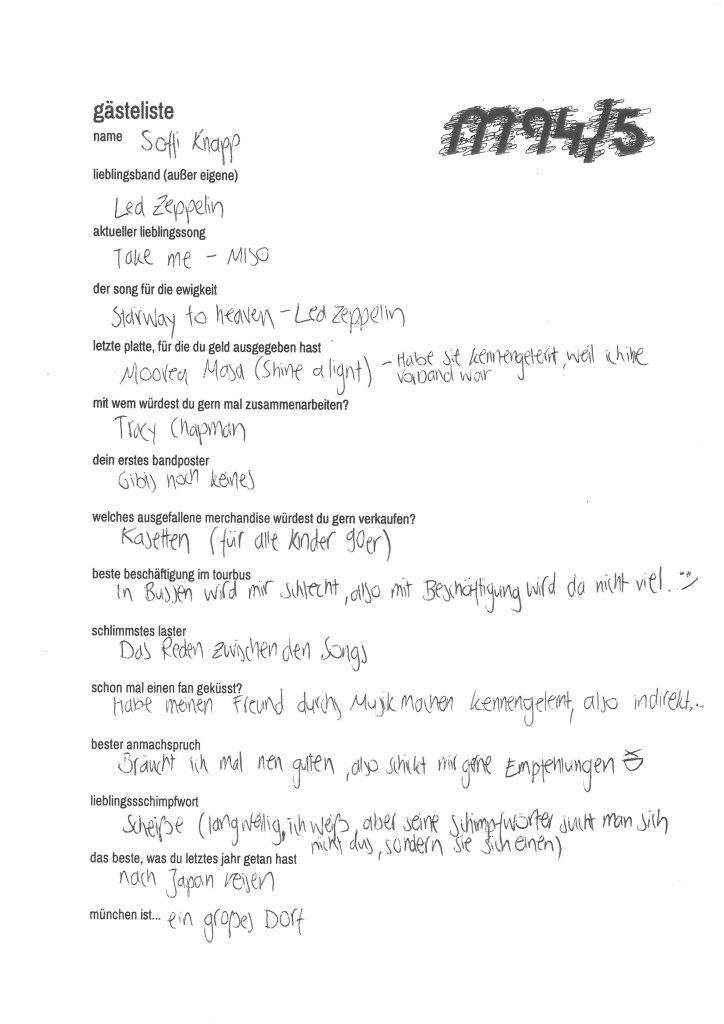 gästeliste
m94/5
name Soffi Knapp
lieblingsband (außer eigene)
Led Zeppelin
aktueller lieblingssong
Take me - MISO
der song für die ewigkeit
Stairway to heaven - Led Zeppelin
letzte platte, für die du geld ausgegeben hast
Moorea Masa (Shine a light) - Habe sie kennengelernt, weil ich ihre
Vorband war
mit wem würdest du gern mal zusammenarbeiten?
Tracy Chapman
dein erstes bandposter
Gibts noch keines
welches ausgefallene merchandise würdest du gern verkaufen?
Kasetten (für alle Kinder 90er)
beste beschäftigung im tourbus
In Bussen wird mir schlecht, also mit Beschäftigung wird da nicht viel...
schlimmstes laster
Das Reden zwischen den Songs
schon mal einen fan geküsst?
Habe meinen Freund durchs Musik machen kennengelernt, also indirekt...
bester anmachspruch
Bräucht ich mal nen guten, also schickt mir gerne Empfehlungen
lieblingssschimpfwort
Scheiße (langweilig, ich weiß, aber seine Schimpfwörter sucht man sich
nicht aus, sondern sie sich einen)
das beste, was du letztes jahr getan hast
nach Japan reisen
münchen ist... ein großes Dorf